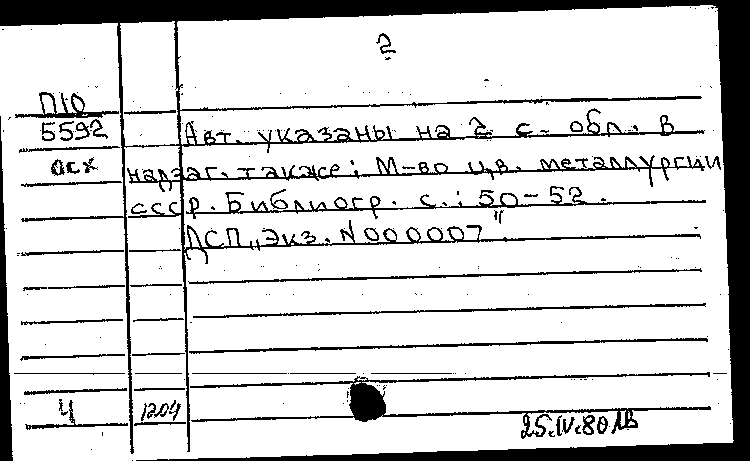 2
П10
5592 Авт. указаны на 2 с. обл. В
осх надзаг. также: М-во цв. металлургии
СССР. Библиогр. с.: 50-52.
ДСП „Экз. N000007".
4 1204
25.IV.80